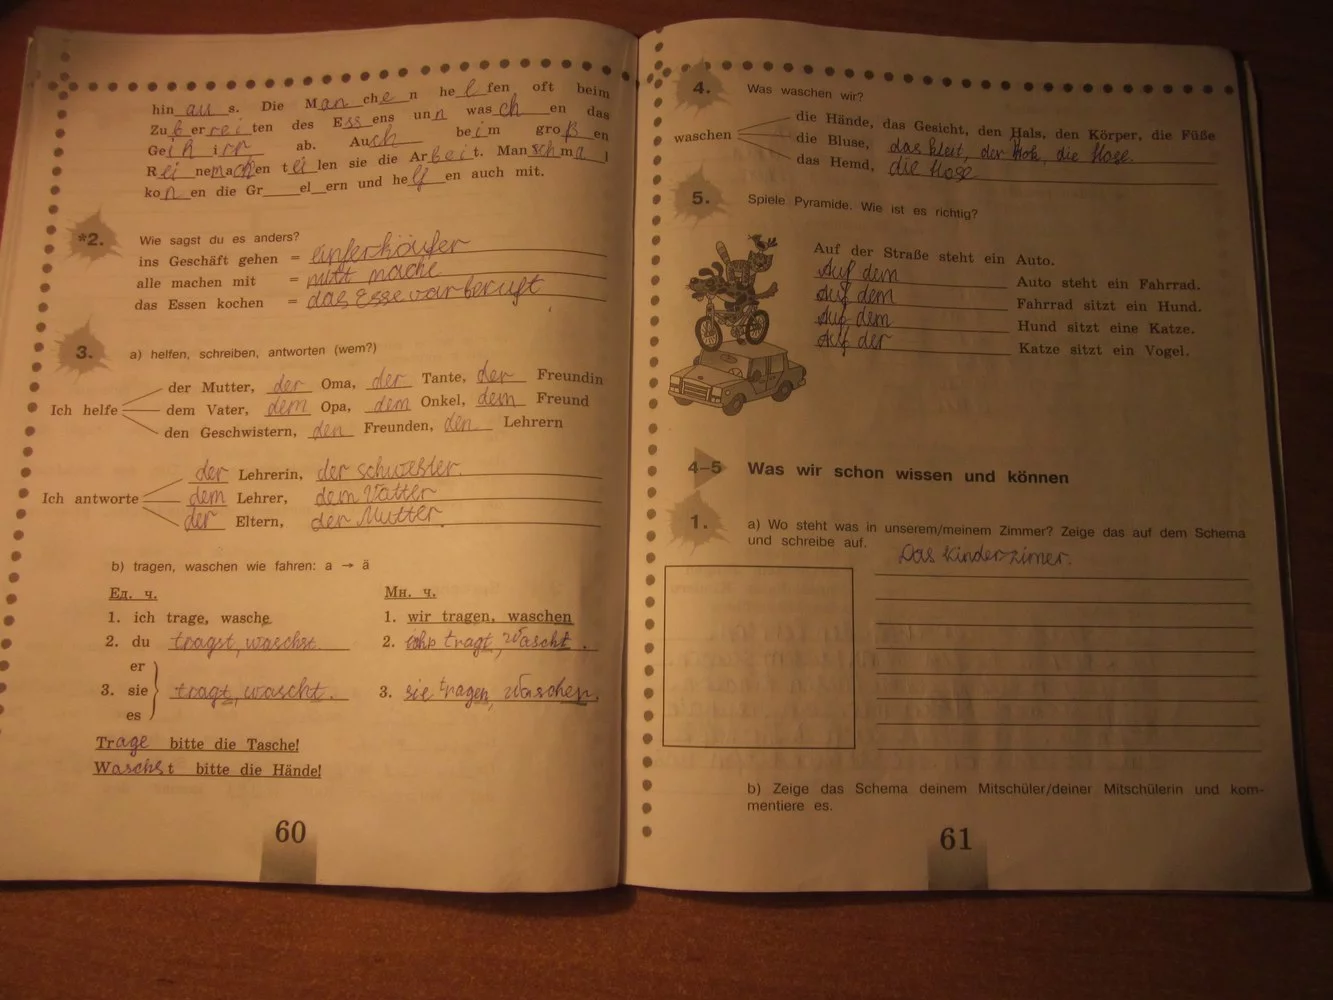 hin au s. Die Man che n he l fen oft beim
Zu b er rei ten des Ess ens un n was ch en das
Ge ih irr ab. Auch be i m gro ß en
R ei nemachen t ei len sie die Ar bei t. Man sch ma l
ko n en die Gr___el_ern und he lf en auch mit.
*2. Wie sagst du es anders?
ins Geschäft gehen =
alle machen mit = mitt mache
das Essen kochen = das Esse
3. a) helfen, schreiben, antworten (wem?)
der Mutter, der Oma, der Tante, der Freundin
Ich helfe dem Vater, dem Opa, dem Onkel, dem Freund
den Geschwistern, den Freunden, den Lehrern
der Lehrerin, der schwester.
Ich antworte dem Lehrer, dem Vatter
der Eltern, der Mutter.
b) tragen, waschen wie fahren: a → ä
Ед. ч.
1. ich trage, wasche
2. du tragst, waschst.
er
3. sie tragt, wascht.
es
Мн. ч.
1. wir tragen, waschen
2. ihr tragt, wascht.
3. sie tragen, waschen.
Trage bitte die Tasche!
Waschst bitte die Hände!
60
4. Was waschen wir?
die Hände, das Gesicht, den Hals, den Körper, die Füße
waschen die Bluse, das kleit, der Rok, die Hose.
das Hemd, die Hose
5. Spiele Pyramide. Wie ist es richtig?
Auf der Straße steht ein Auto.
Auf dem Auto steht ein Fahrrad.
Auf dem Fahrrad sitzt ein Hund.
Auf dem Hund sitzt eine Katze.
Auf der Katze sitzt ein Vogel.
4–5 Was wir schon wissen und können
1. a) Wo steht was in unserem/meinem Zimmer? Zeige das auf dem Schema
und schreibe auf. Das Kinderzimer.
b) Zeige das Schema deinem Mitschüler/deiner Mitschülerin und kom-
mentiere es.
61